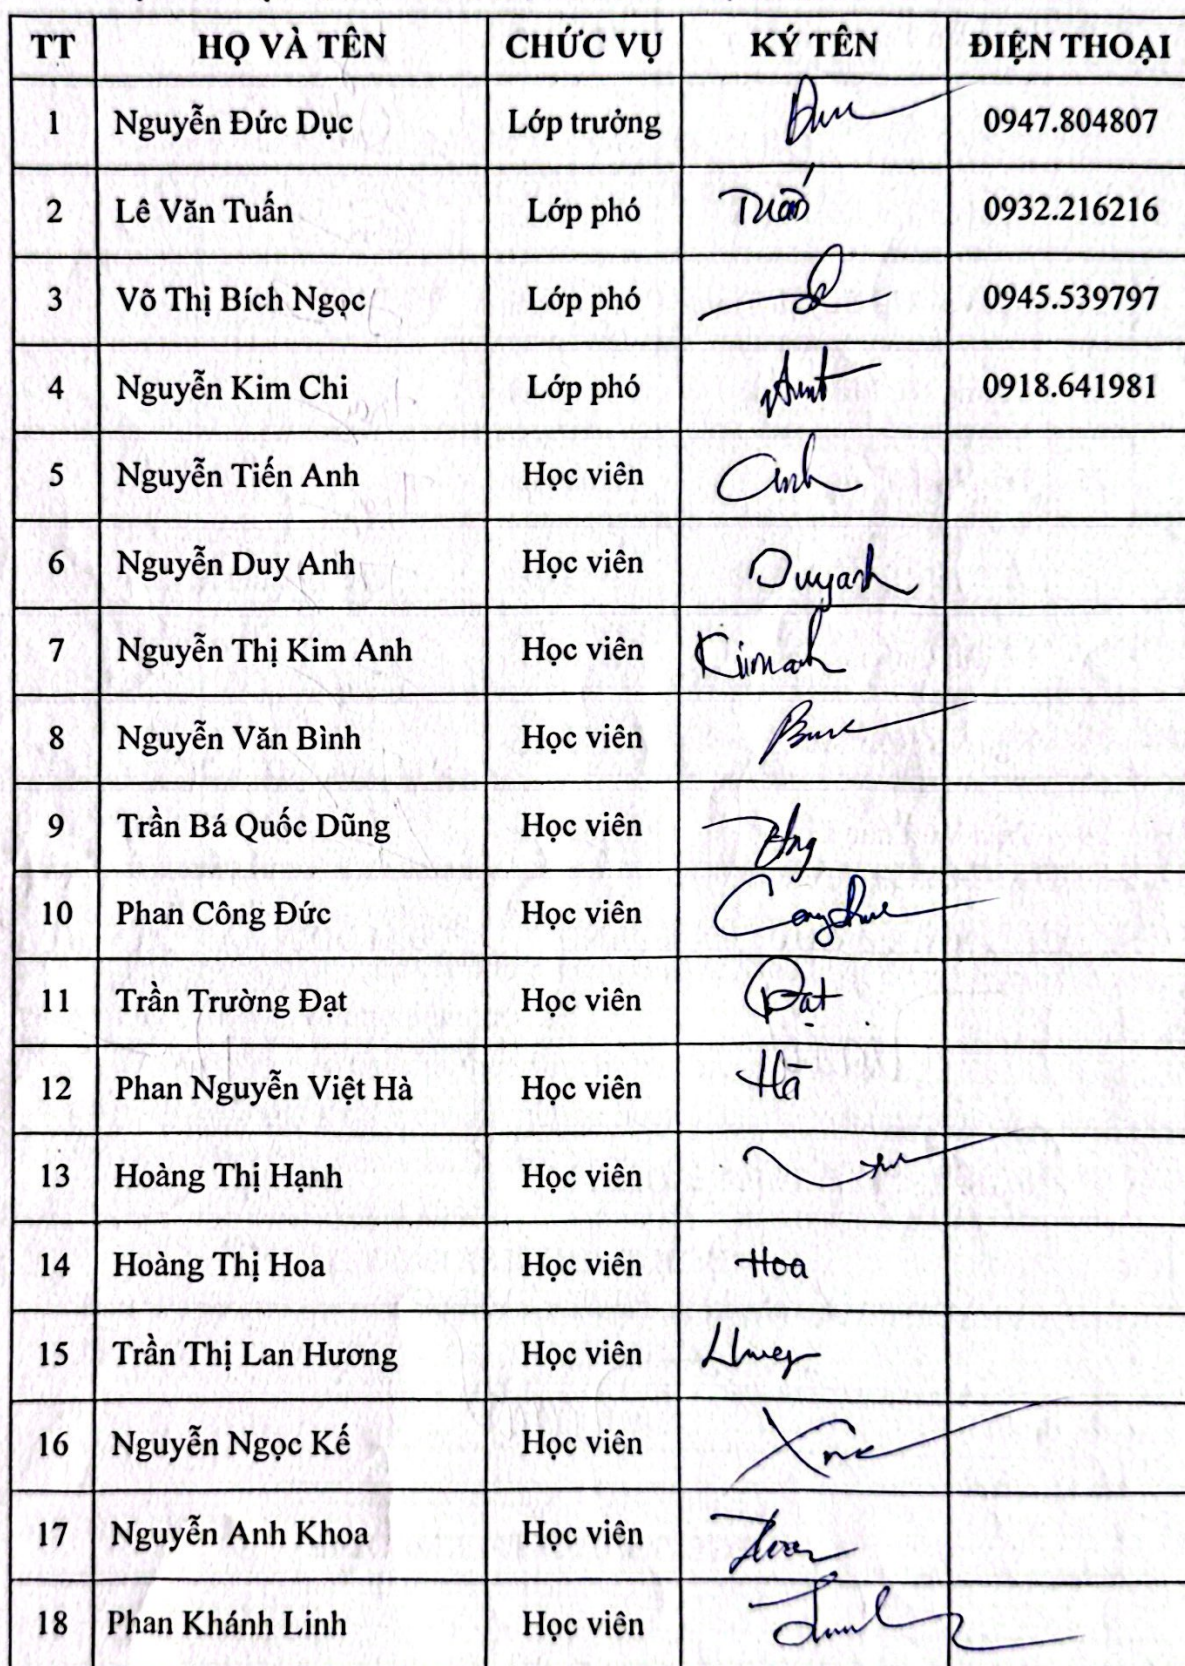 TT HỌ VÀ TÊN CHỨC VỤ KÝ TÊN ĐIỆN THOẠI
1 Nguyễn Đức Dục Lớp trưởng 0947.804807
2 Lê Văn Tuấn Lớp phó Tuấn 0932.216216
3 Võ Thị Bích Ngọc Lớp phó 0945.539797
4 Nguyễn Kim Chi Lớp phó 0918.641981
5 Nguyễn Tiến Anh Học viên Anh
6 Nguyễn Duy Anh Học viên Duyanh
7 Nguyễn Thị Kim Anh Học viên Kimanh
8 Nguyễn Văn Bình Học viên
9 Trần Bá Quốc Dũng Học viên
10 Phan Công Đức Học viên
11 Trần Trường Đạt Học viên Đạt
12 Phan Nguyễn Việt Hà Học viên Hà
13 Hoàng Thị Hạnh Học viên
14 Hoàng Thị Hoa Học viên Hoa
15 Trần Thị Lan Hương Học viên
16 Nguyễn Ngọc Kế Học viên
17 Nguyễn Anh Khoa Học viên
18 Phan Khánh Linh Học viên